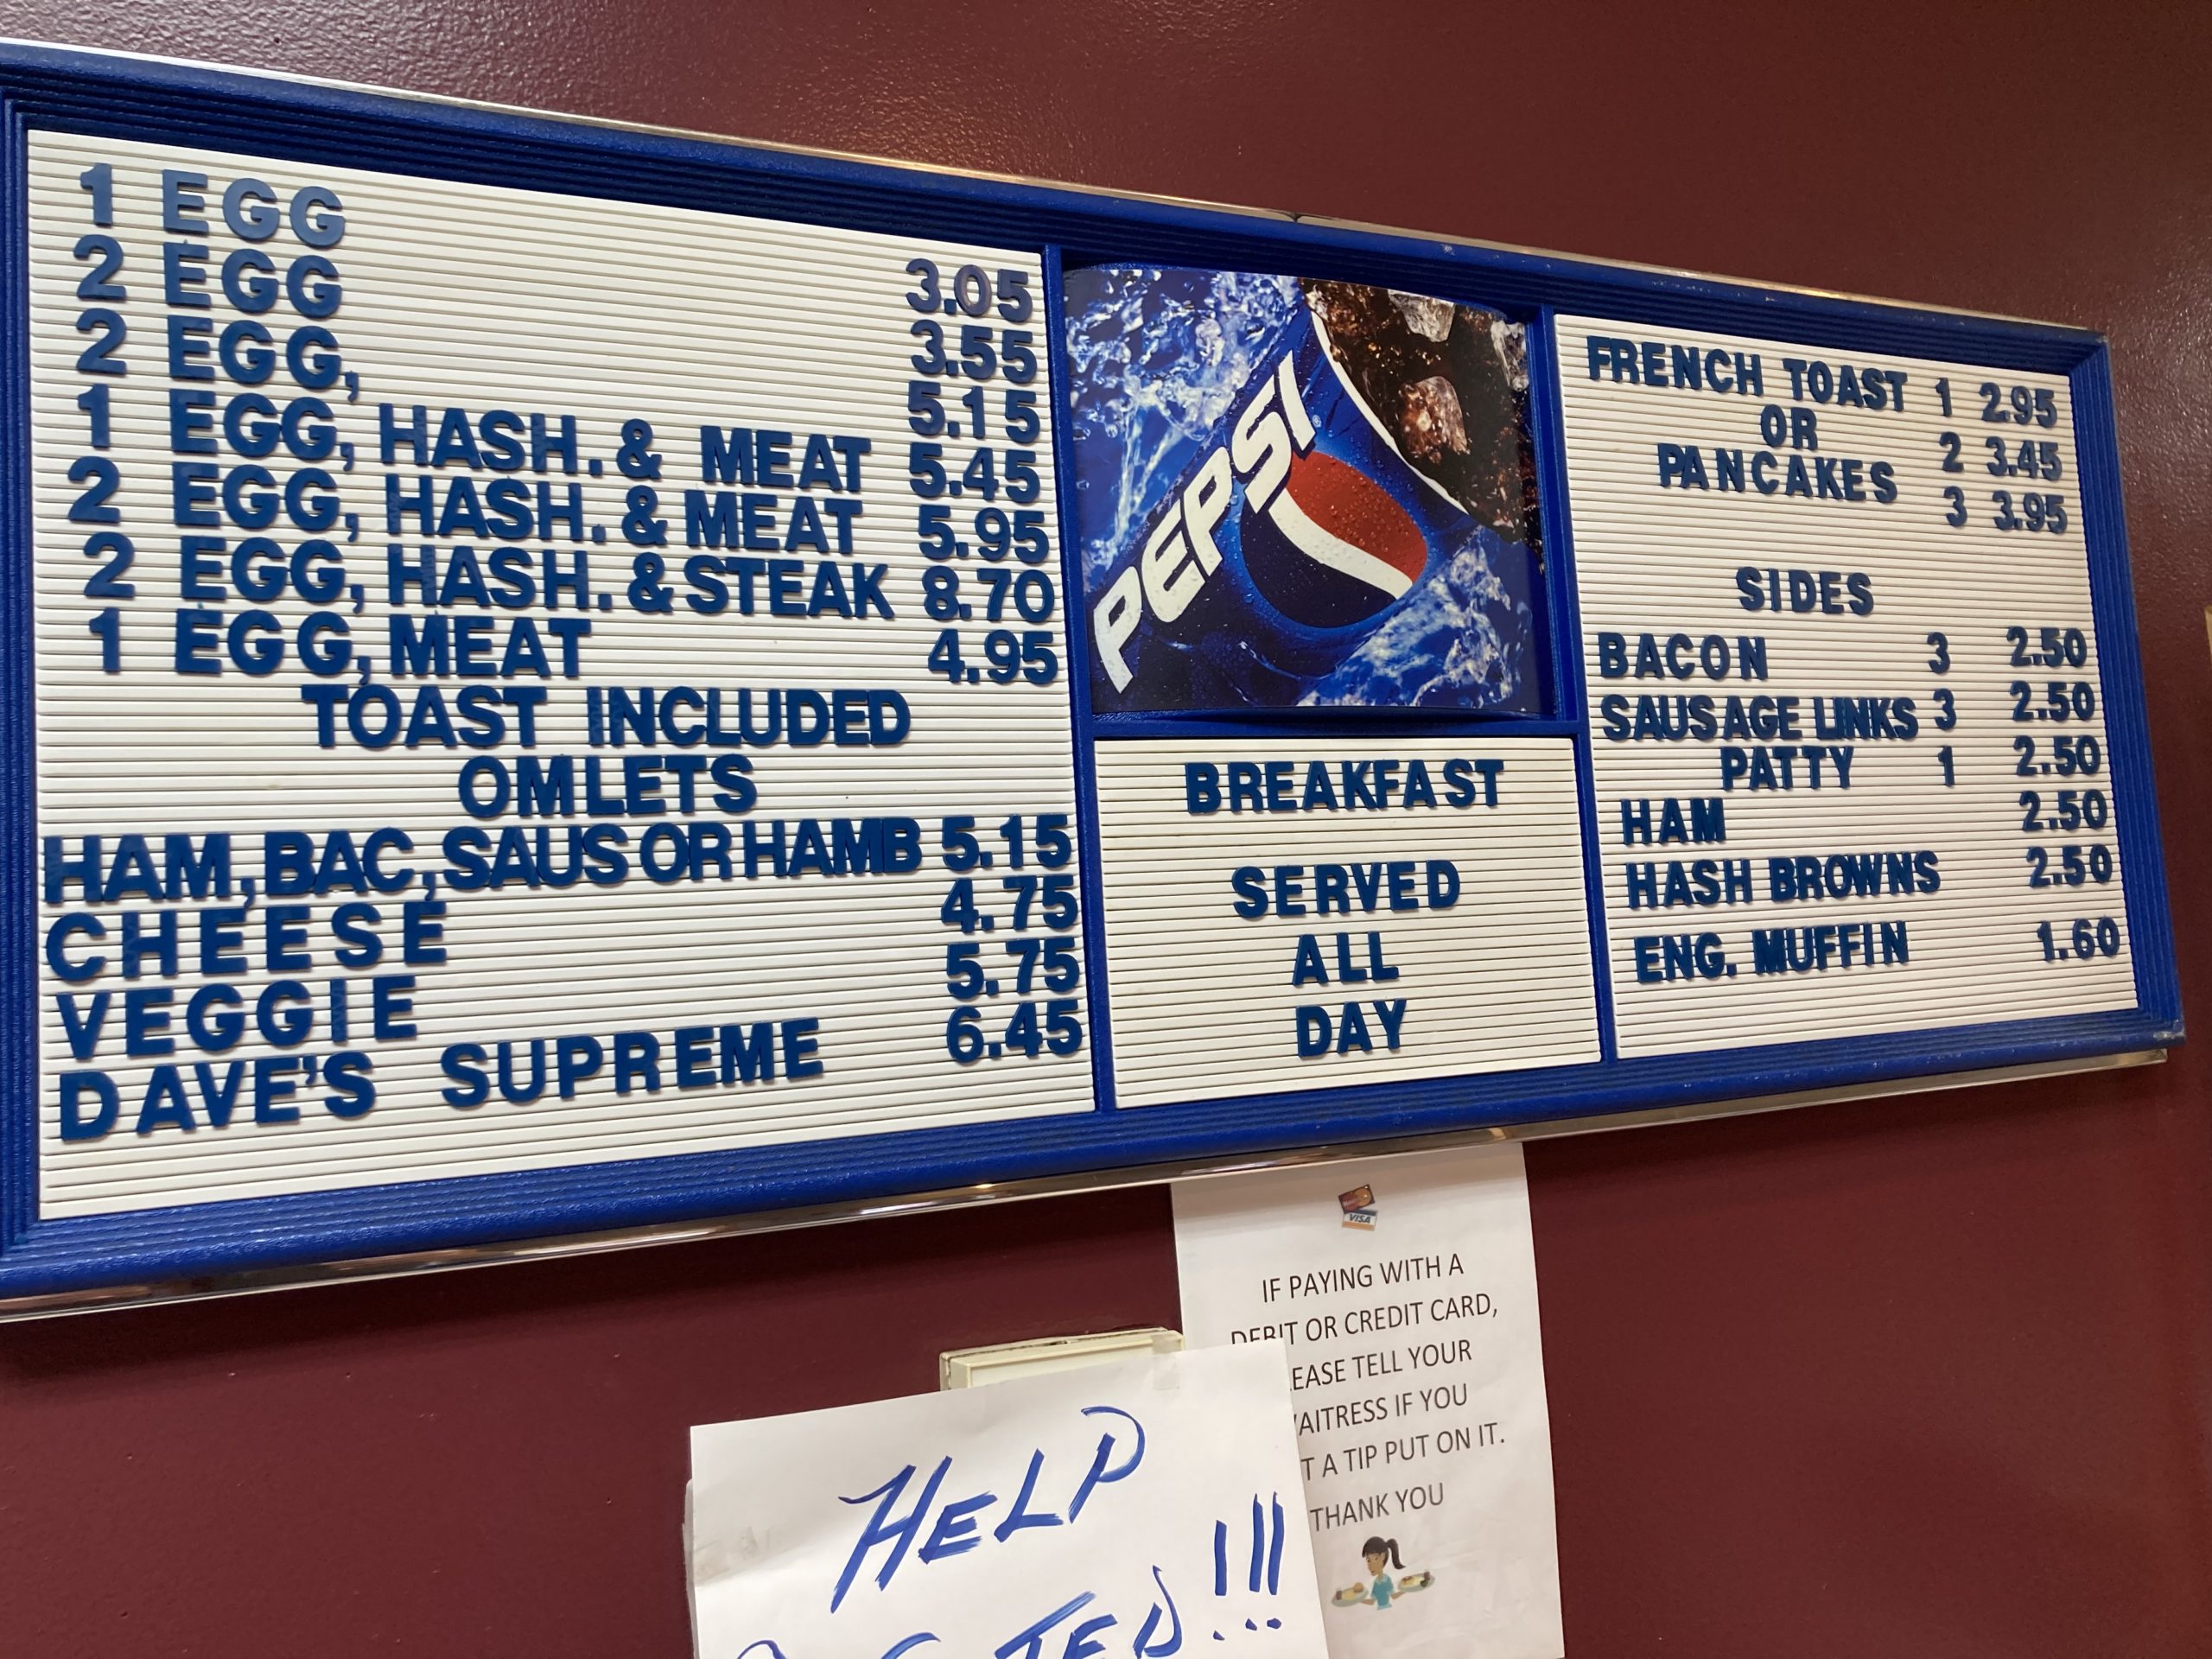 1 EGG 3.05
2 EGG 3.55
2 EGG, 5.15
1 EGG, HASH. & MEAT 5.45
2 EGG, HASH. & MEAT 5.95
2 EGG, HASH. & STEAK 8.70
1 EGG, MEAT 4.95
TOAST INCLUDED
OMLETS
HAM, BAC, SAUS OR HAMB 5.15
CHEESE 4.75
VEGGIE 5.75
DAVE'S SUPREME 6.45
PEPSI
BREAKFAST
SERVED
ALL
DAY
FRENCH TOAST 1 2.95
OR
2 3.45
PANCAKES
3 3.95
SIDES
BACON 3 2.50
SAUSAGE LINKS 3 2.50
PATTY 1 2.50
HAM 2.50
HASH BROWNS 2.50
ENG. MUFFIN 1.60
VISA
IF PAYING WITH A
DEBIT OR CREDIT CARD,
EASE TELL YOUR
AITRESS IF YOU
T A TIP PUT ON IT.
THANK YOU
HELP
!!!